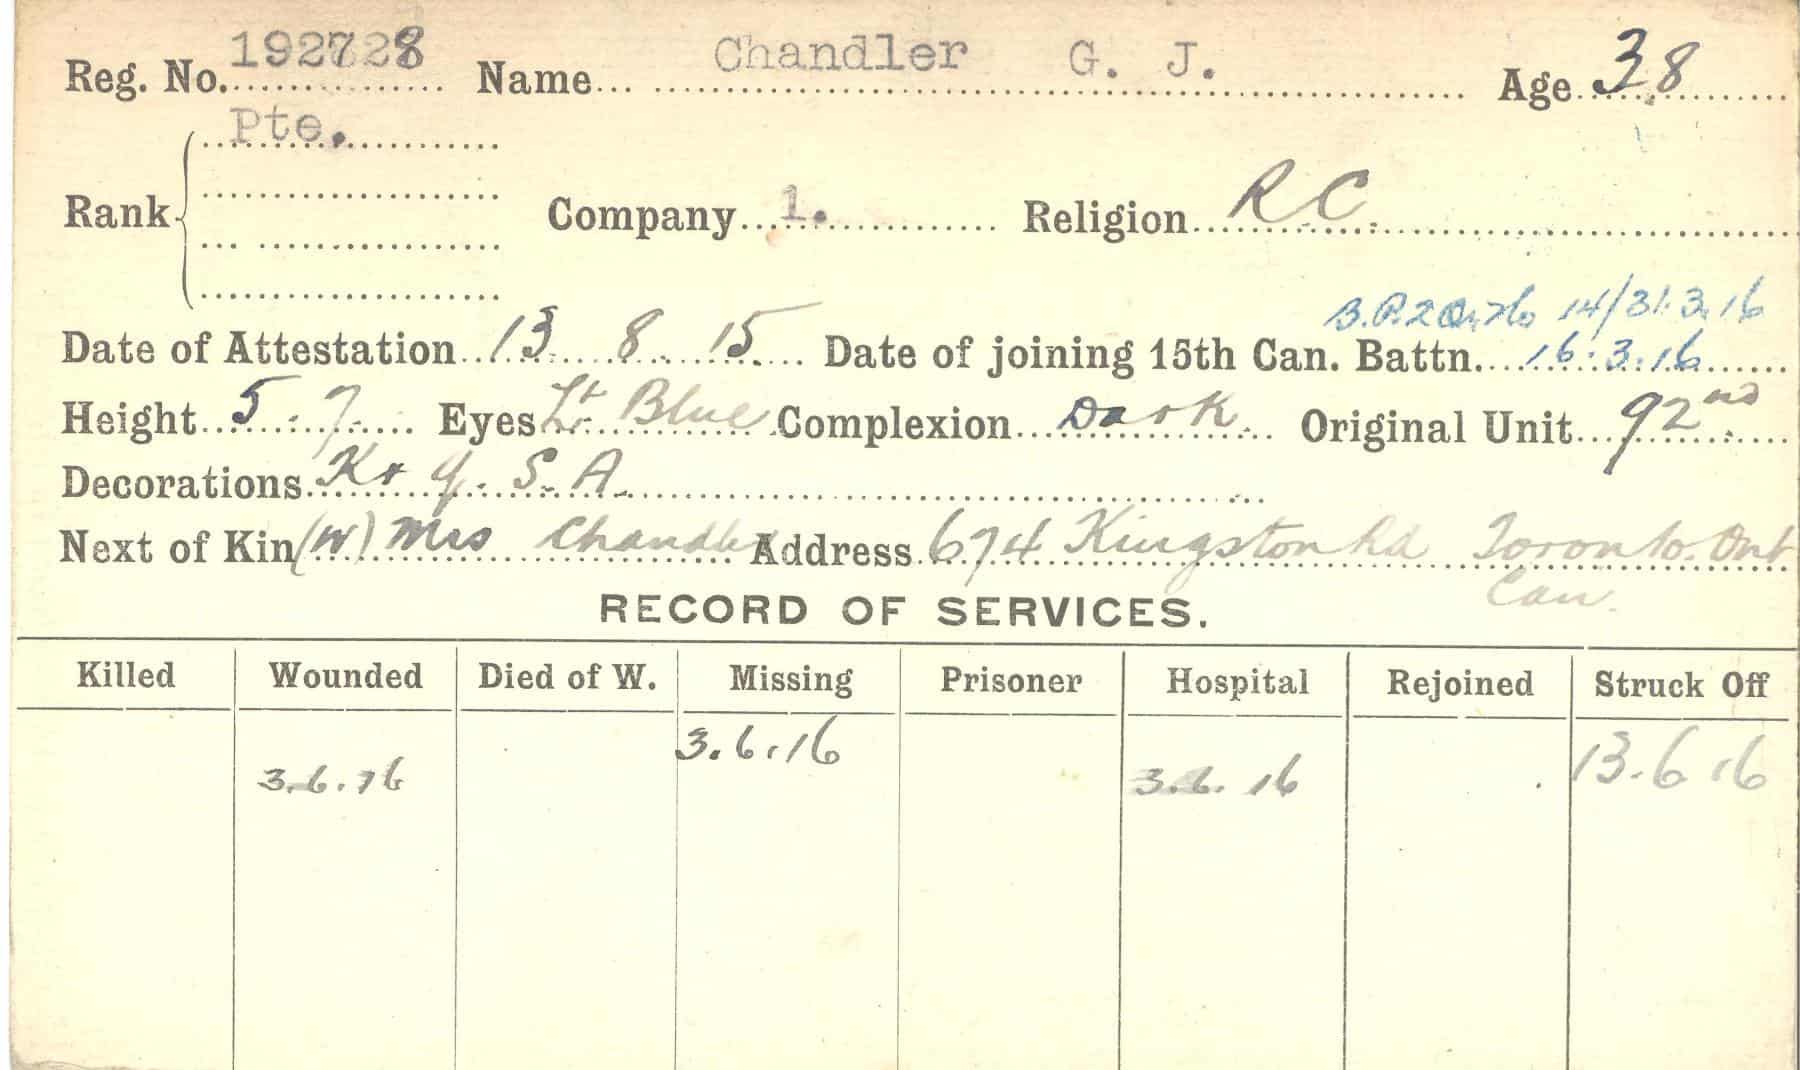 Reg. No. 192728 Name Chandler G. J. Age 38
Pte.
Rank Company 1. Religion R C.
14/31.3.16
Date of Attestation 13 8 15 Date of joining 15th Can. Battn. 16.3.16
Height 5.7. Eyes Lt Blue Complexion Dark. Original Unit 92nd
Decorations S. A.
Next of Kin (W) Mrs Chandler Address 674 Kingston Rd Toronto. Ont
Can.
RECORD OF SERVICES.
Killed Wounded Died of W. Missing Prisoner Hospital Rejoined Struck Off
3.6.16 13.6.16
3.6.16 3.6.16